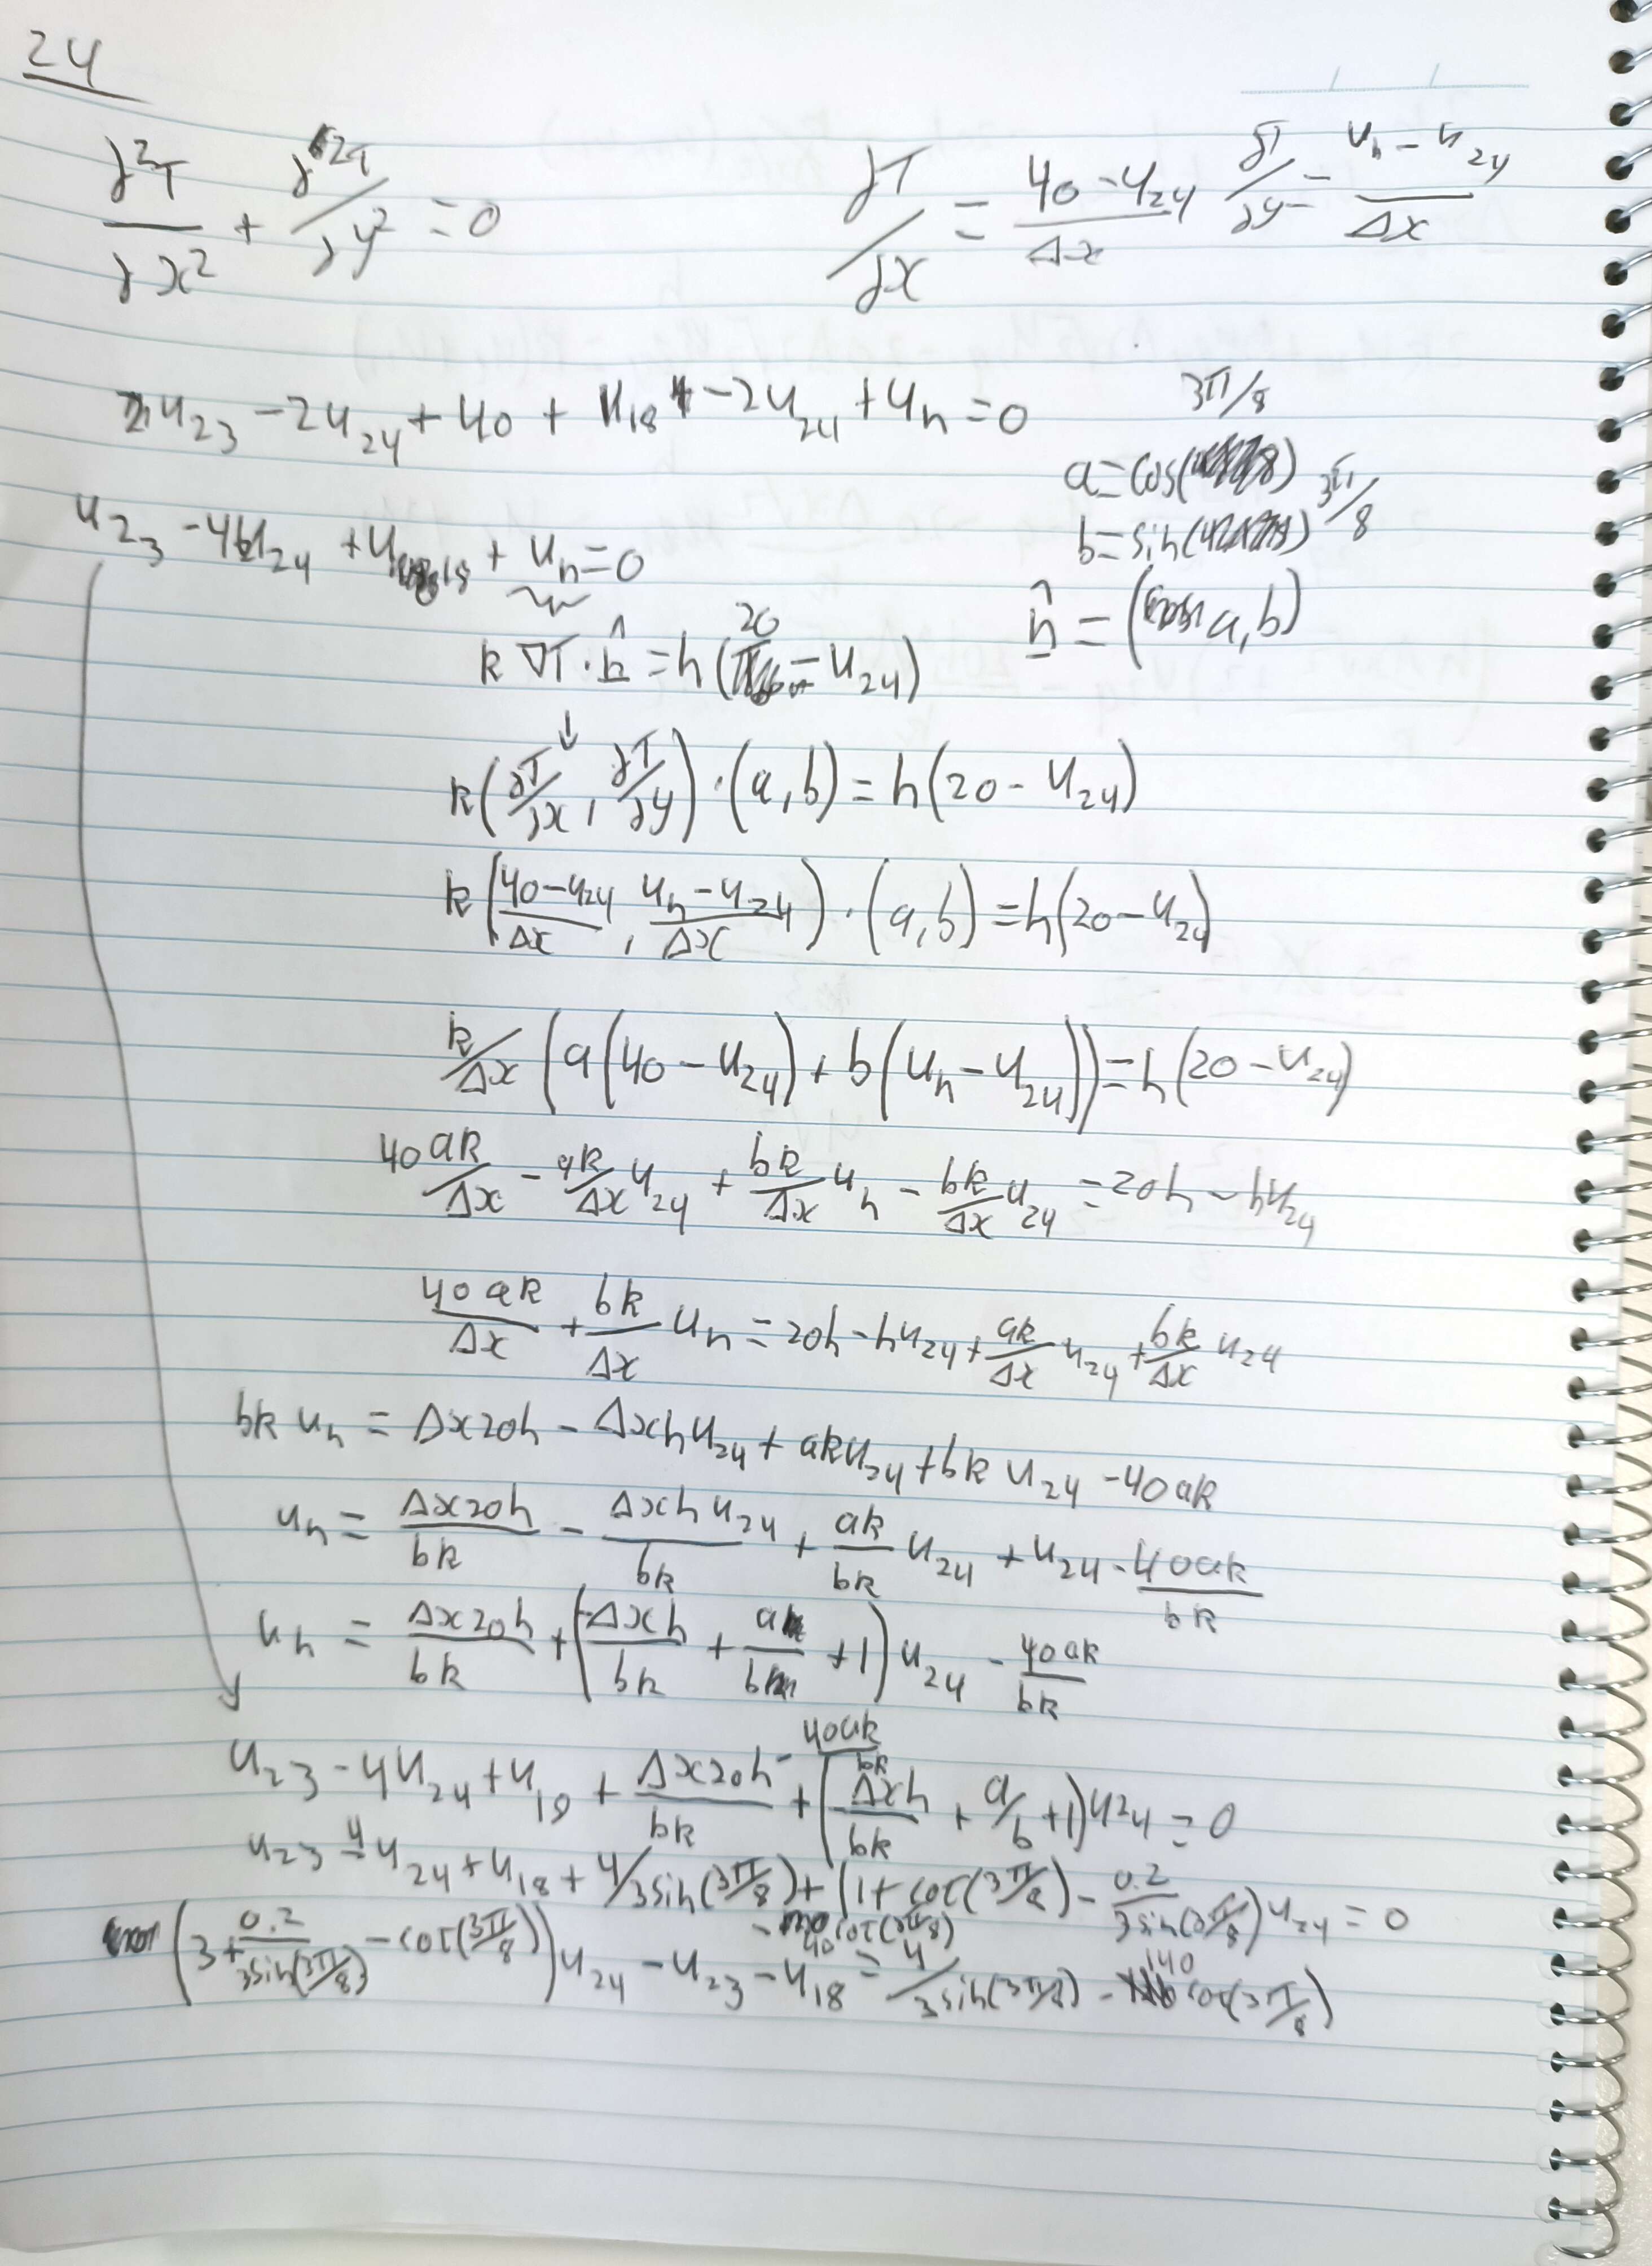 24
∂²T/∂x² + ∂²T/∂y² = 0
∂T/∂x = (40 - u₂₄)/Δx  ∂T/∂y = (uₙ - u₂₄)/Δx
u₂₃ - 2u₂₄ + 40 + u₁₈ - 2u₂₄ + uₙ = 0
3π/8
a = cos( )
b = sin( ) 3π/8
u₂₃ - 4u₂₄ + u₁₈ + uₙ = 0
n̂ = (a, b)
k ∇T · n̂ = h(20 - u₂₄)
↓
k(∂T/∂x, ∂T/∂y) · (a, b) = h(20 - u₂₄)
k((40 - u₂₄)/Δx, (uₙ - u₂₄)/Δx) · (a, b) = h(20 - u₂₄)
k/Δx (a(40 - u₂₄) + b(uₙ - u₂₄)) = h(20 - u₂₄)
40ak/Δx - ak/Δx u₂₄ + bk/Δx uₙ - bk/Δx u₂₄ = 20h - hu₂₄
40ak/Δx + bk/Δx uₙ = 20h - hu₂₄ + ak/Δx u₂₄ + bk/Δx u₂₄
bk uₙ = Δx20h - Δxhu₂₄ + aku₂₄ + bk u₂₄ - 40ak
uₙ = Δx20h/bk - Δxhu₂₄/bk + ak/bk u₂₄ + u₂₄ - 40ak/bk
uₙ = Δx20h/bk + (-Δxh/bk + a/b + 1) u₂₄ - 40ak/bk
u₂₃ - 4u₂₄ + u₁₈ + Δx20h/bk - 40ak/bk + (-Δxh/bk + a/b + 1) u₂₄ = 0
u₂₃ - 4u₂₄ + u₁₈ + 4/3sin(3π/8) + (1 + cot(3π/8) - 0.2/3sin(3π/8)) u₂₄ = 0
- 40 cot(3π/8)
(3 + 0.2/3sin(3π/8) - cot(3π/8)) u₂₄ - u₂₃ - u₁₈ = 4/3sin(3π/8) - 140 cot(3π/8)